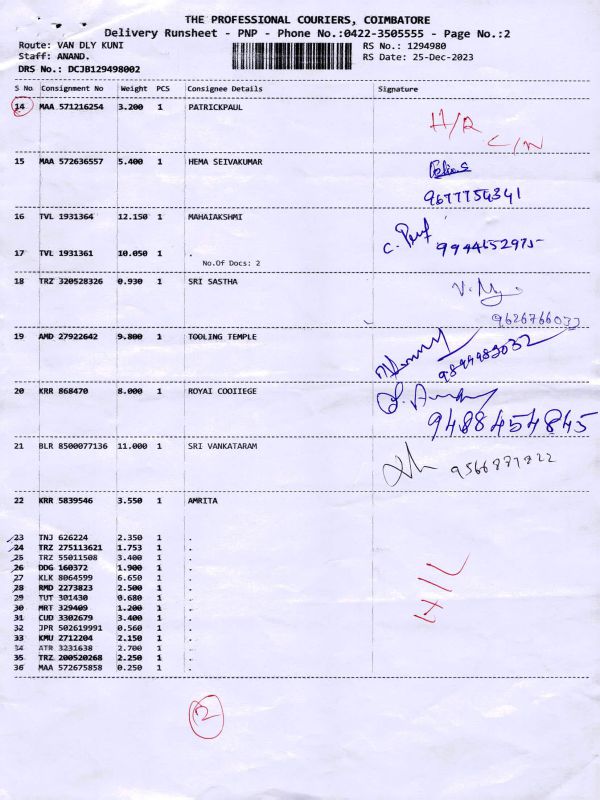 THE PROFESSIONAL COURIERS, COIMBATORE
Delivery Runsheet - PNP - Phone No.:0422-3505555 - Page No.:2
Route: VAN DLY KUNI RS No.: 1294980
Staff: ANAND. RS Date: 25-Dec-2023
DRS No.: DCJB129498002
S No Consignment No Weight PCS Consignee Details Signature
14 MAA 571216254 3.200 1 PATRICKPAUL
H/R
C/N
15 MAA 572636557 5.400 1 HEMA SEIVAKUMAR
9677754341
16 TVL 1931364 12.150 1 MAHAIAKSHMI
17 TVL 1931361 10.050 1 .
No.Of Docs: 2
18 TRZ 320528326 0.930 1 SRI SASTHA
19 AMD 27922642 9.800 1 TOOLING TEMPLE
20 KRR 868470 8.000 1 ROYAI COOIIEGE
9488454845
21 BLR 8500077136 11.000 1 SRI VANKATARAM
22 KRR 5839546 3.550 1 AMRITA
23 TNJ 626224 2.350 1 .
24 TRZ 275113621 1.753 1 .
25 TRZ 55011508 3.400 1 .
26 DDG 160372 1.900 1 .
27 KLK 8064599 6.650 1 .
28 RMD 2273823 2.500 1 .
29 TUT 301430 0.680 1 .
30 MRT 329409 1.200 1 .
31 CUD 3302679 3.400 1 .
32 JPR 502619991 0.560 1 .
33 KMU 2712204 2.150 1 .
34 ATR 3231638 2.700 1 .
35 TRZ 200520268 2.250 1 .
36 MAA 572675858 0.250 1 .
2